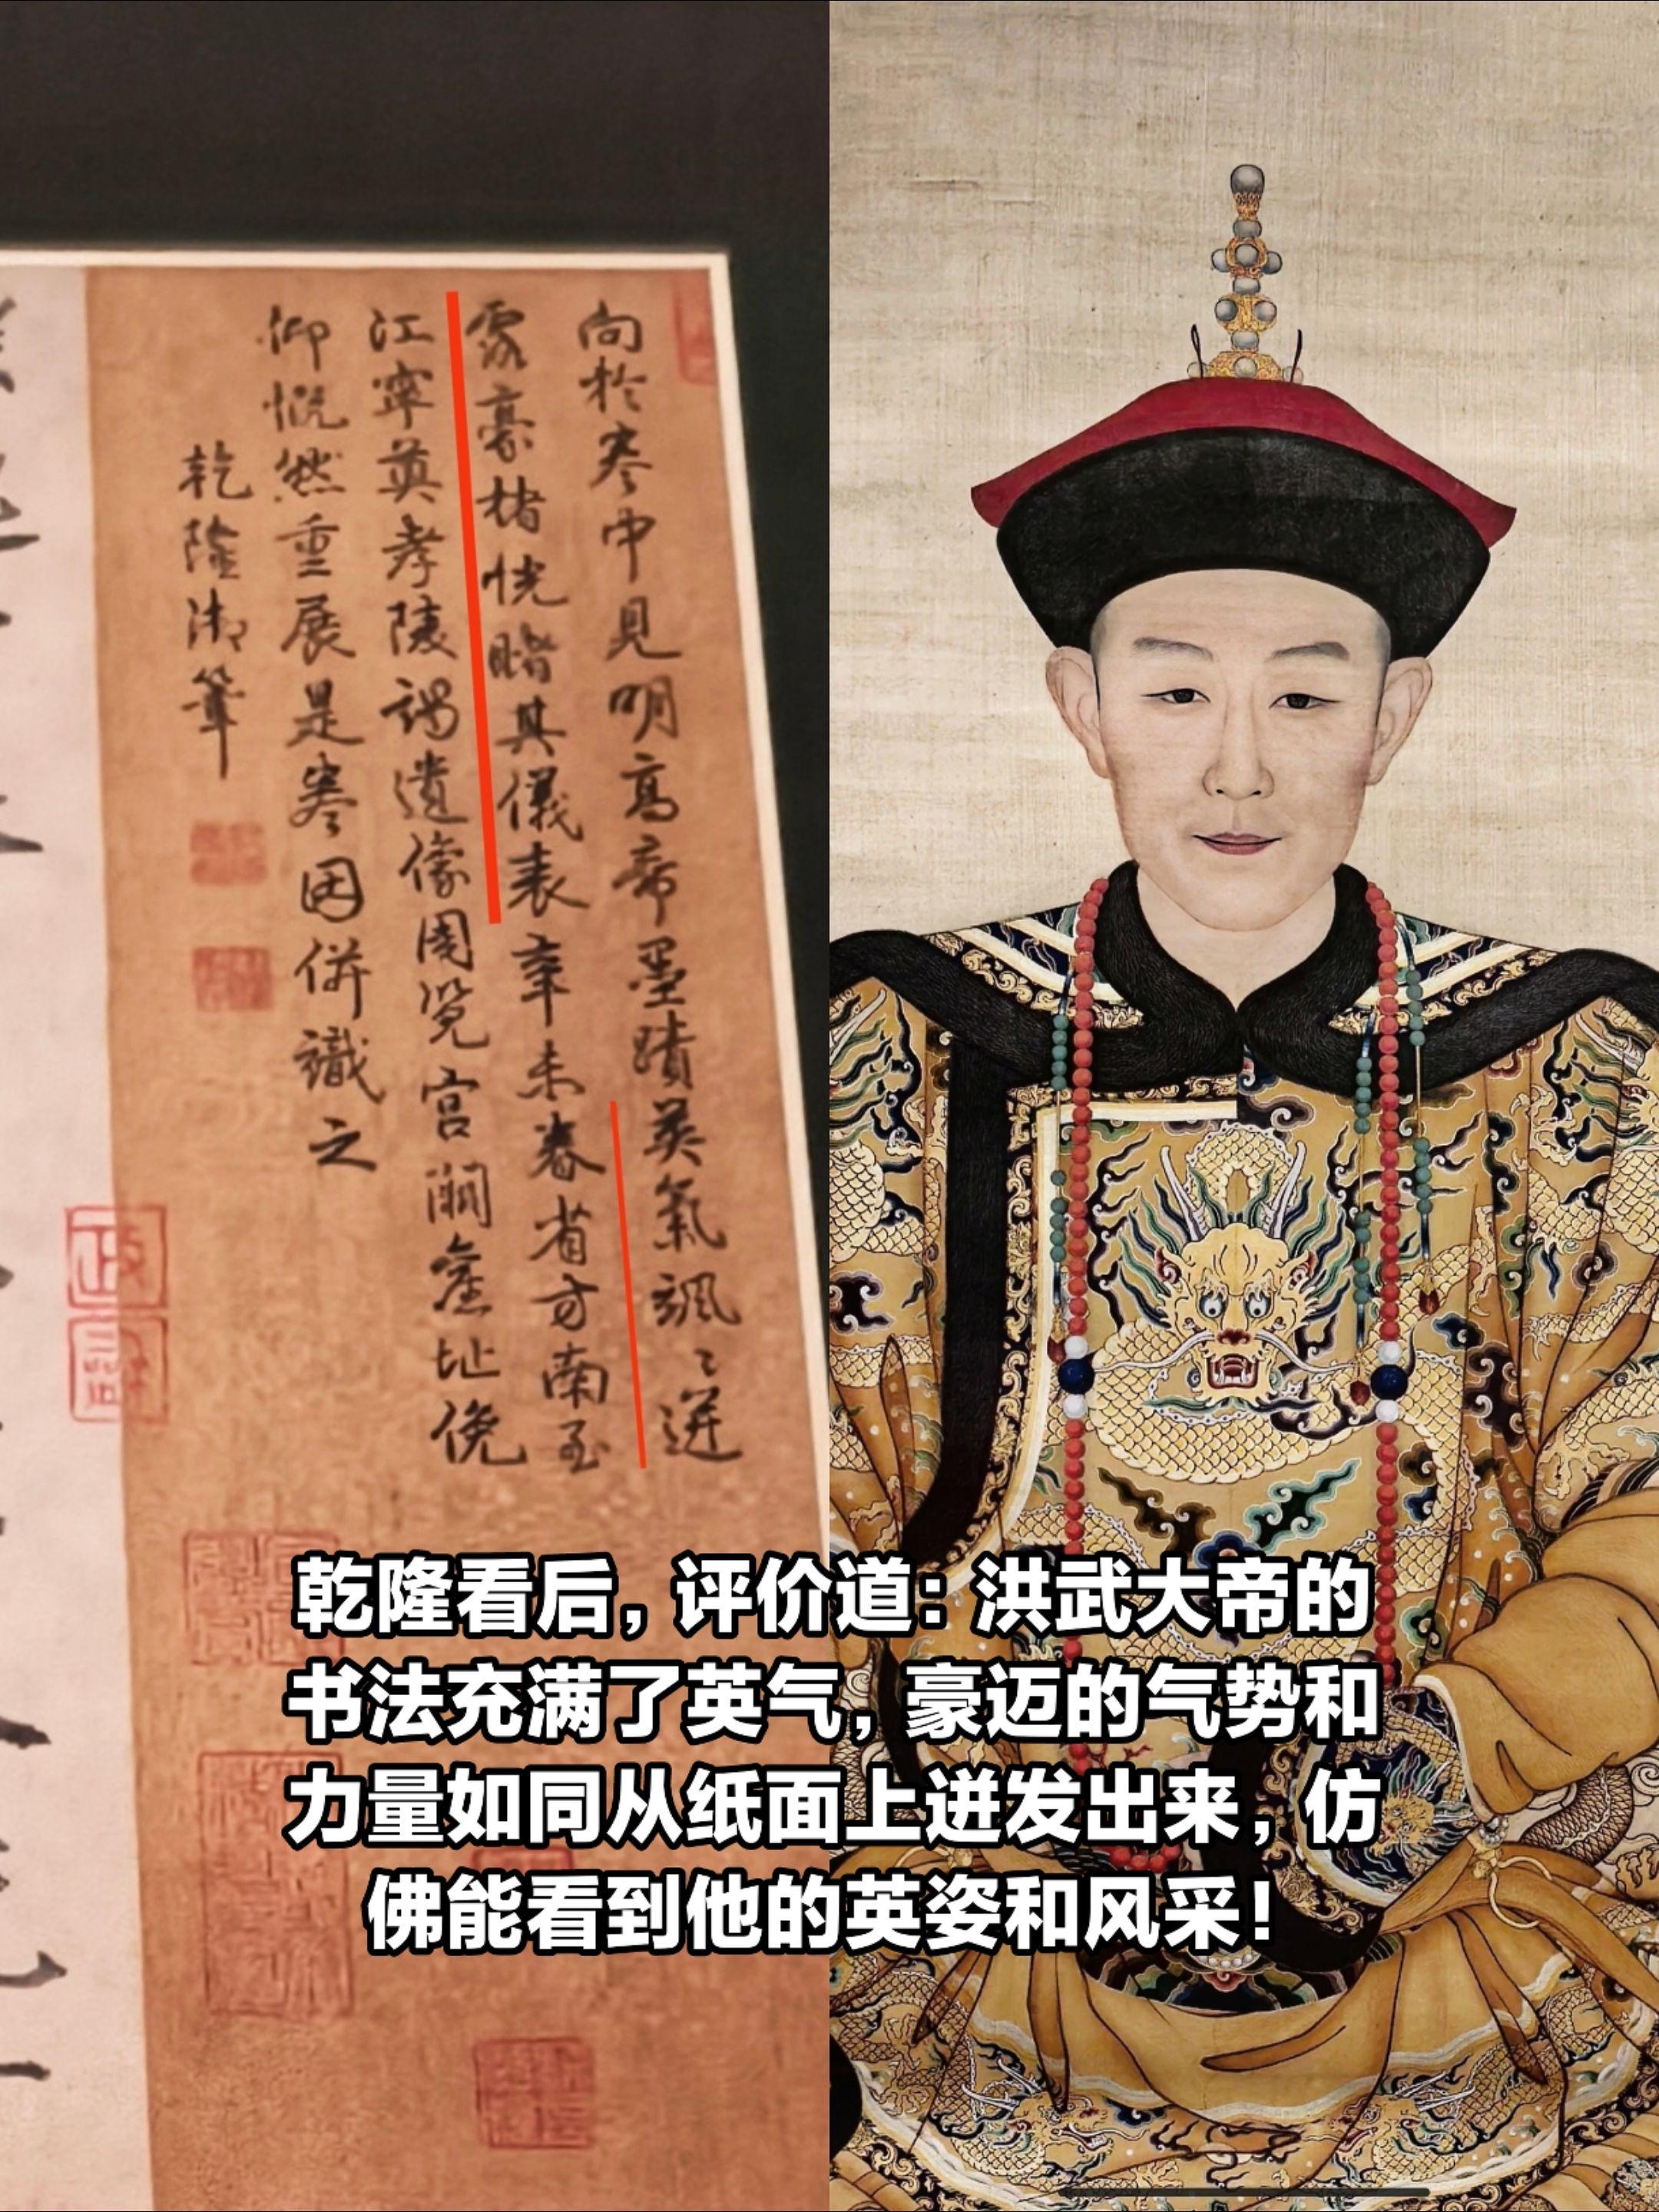 向於卷中見明高帝墨蹟英氣颯〻迸
露豪楮恍睹其儀表辛未春省方南至
江寧奠孝陵謁遺像周覽宮闕舊址俛
仰慨然重展是卷因併識之
乾隆御筆
乾隆看后，评价道：洪武大帝的
书法充满了英气，豪迈的气势和
力量如同从纸面上迸发出来，仿
佛能看到他的英姿和风采！